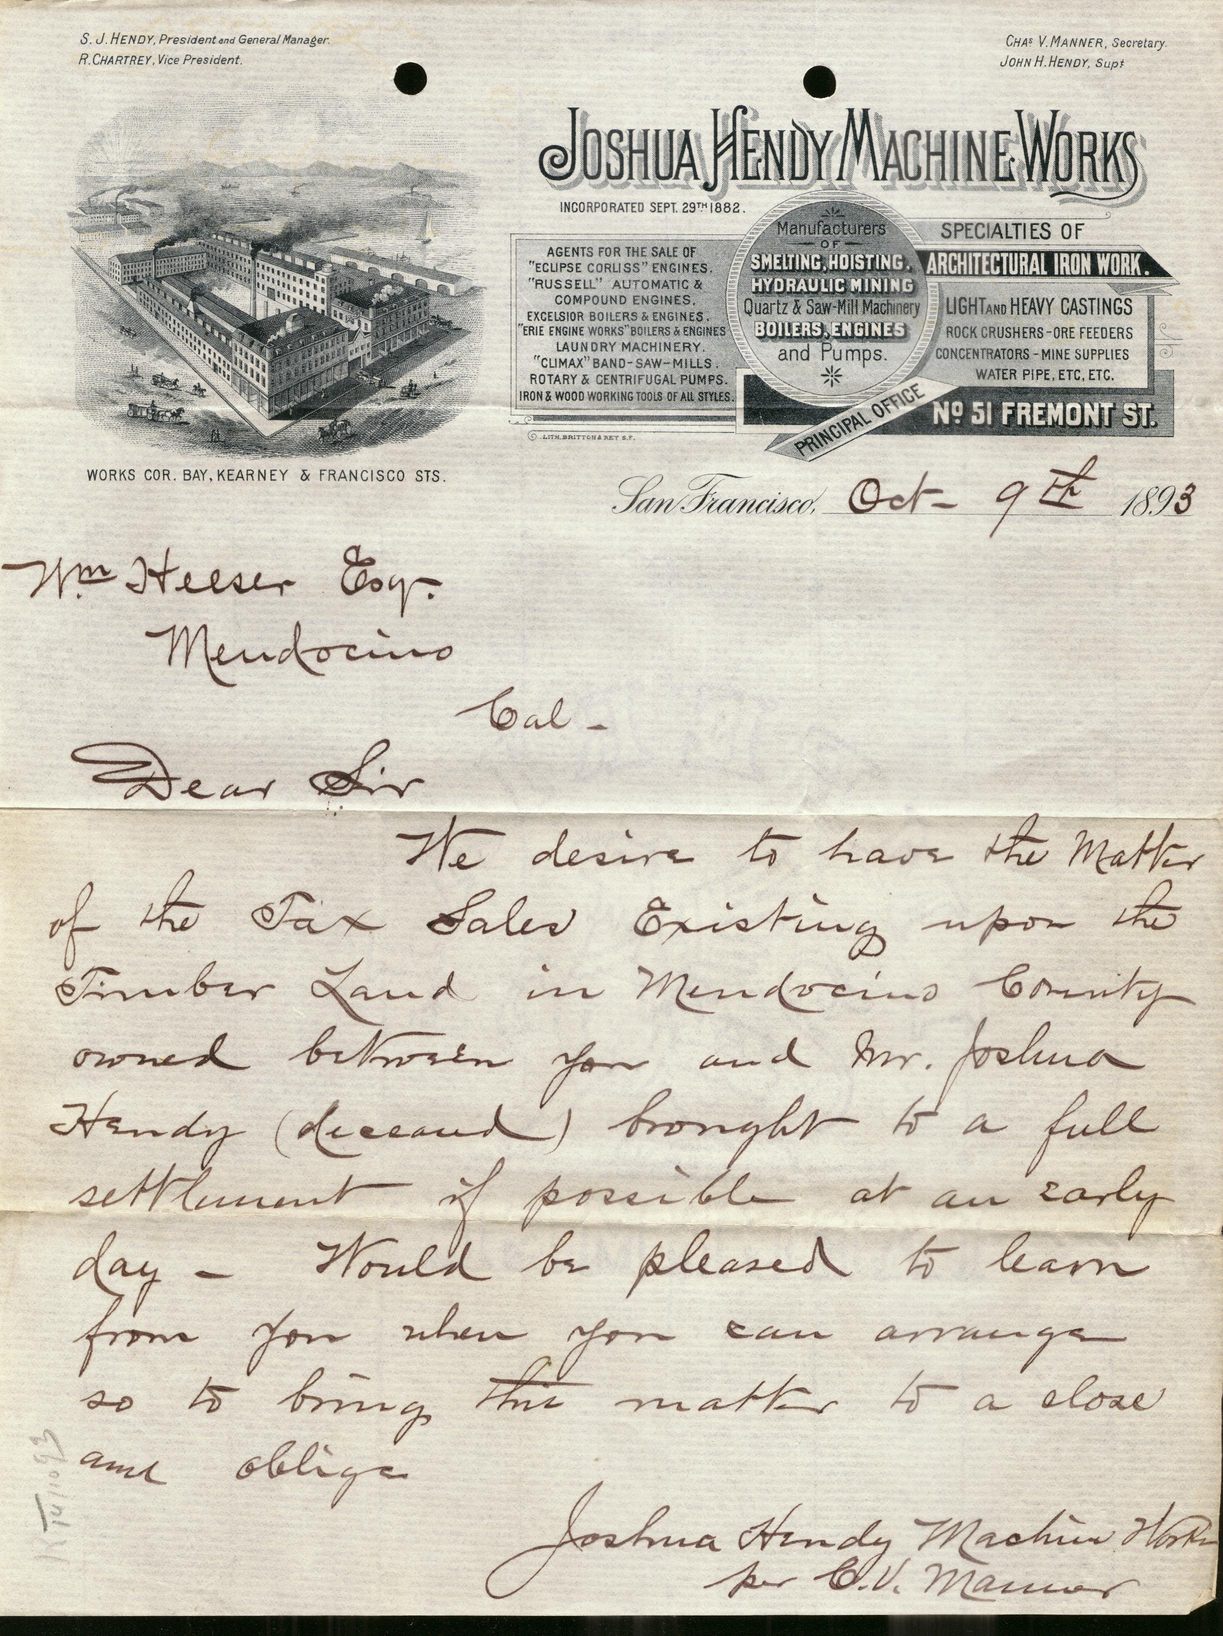 S. J. HENDY, President and General Manager.
R. CHARTREY, Vice President.
CHAS V. MANNER, Secretary.
JOHN H. HENDY, Supt
JOSHUA HENDY MACHINE WORKS
INCORPORATED SEPT. 29TH 1882.
AGENTS FOR THE SALE OF
"ECLIPSE CORLISS" ENGINES.
"RUSSELL" AUTOMATIC &
COMPOUND ENGINES.
EXCELSIOR BOILERS & ENGINES.
"ERIE ENGINE WORKS" BOILERS & ENGINES
LAUNDRY MACHINERY.
"CLIMAX" BAND-SAW-MILLS.
ROTARY & CENTRIFUGAL PUMPS.
IRON & WOOD WORKING TOOLS OF ALL STYLES.
Manufacturers
OF
SMELTING, HOISTING,
HYDRAULIC MINING
Quartz & Saw-Mill Machinery
BOILERS, ENGINES
and Pumps.
SPECIALTIES OF
ARCHITECTURAL IRON WORK.
LIGHT AND HEAVY CASTINGS
ROCK CRUSHERS-ORE FEEDERS
CONCENTRATORS-MINE SUPPLIES
WATER PIPE, ETC, ETC.
PRINCIPAL OFFICE
No 51 FREMONT ST.
LITH. BRITTON & REY S.F.
WORKS COR. BAY, KEARNEY & FRANCISCO STS.
San Francisco, Oct- 9th 1893
Wm Heeser Esq.
Mendocino
Cal-
Dear Sir
We desire to have the Matter
of the Tax Sales Existing upon the
Timber Land in Mendocino County
owned between you and Mr. Joshua
Hendy (deceased) brought to a full
settlement if possible at an early
day - Would be pleased to learn
from you when you can arrange
so to bring this matter to a close
and oblige
Joshua Hendy Machine Works
per C. V. Manner